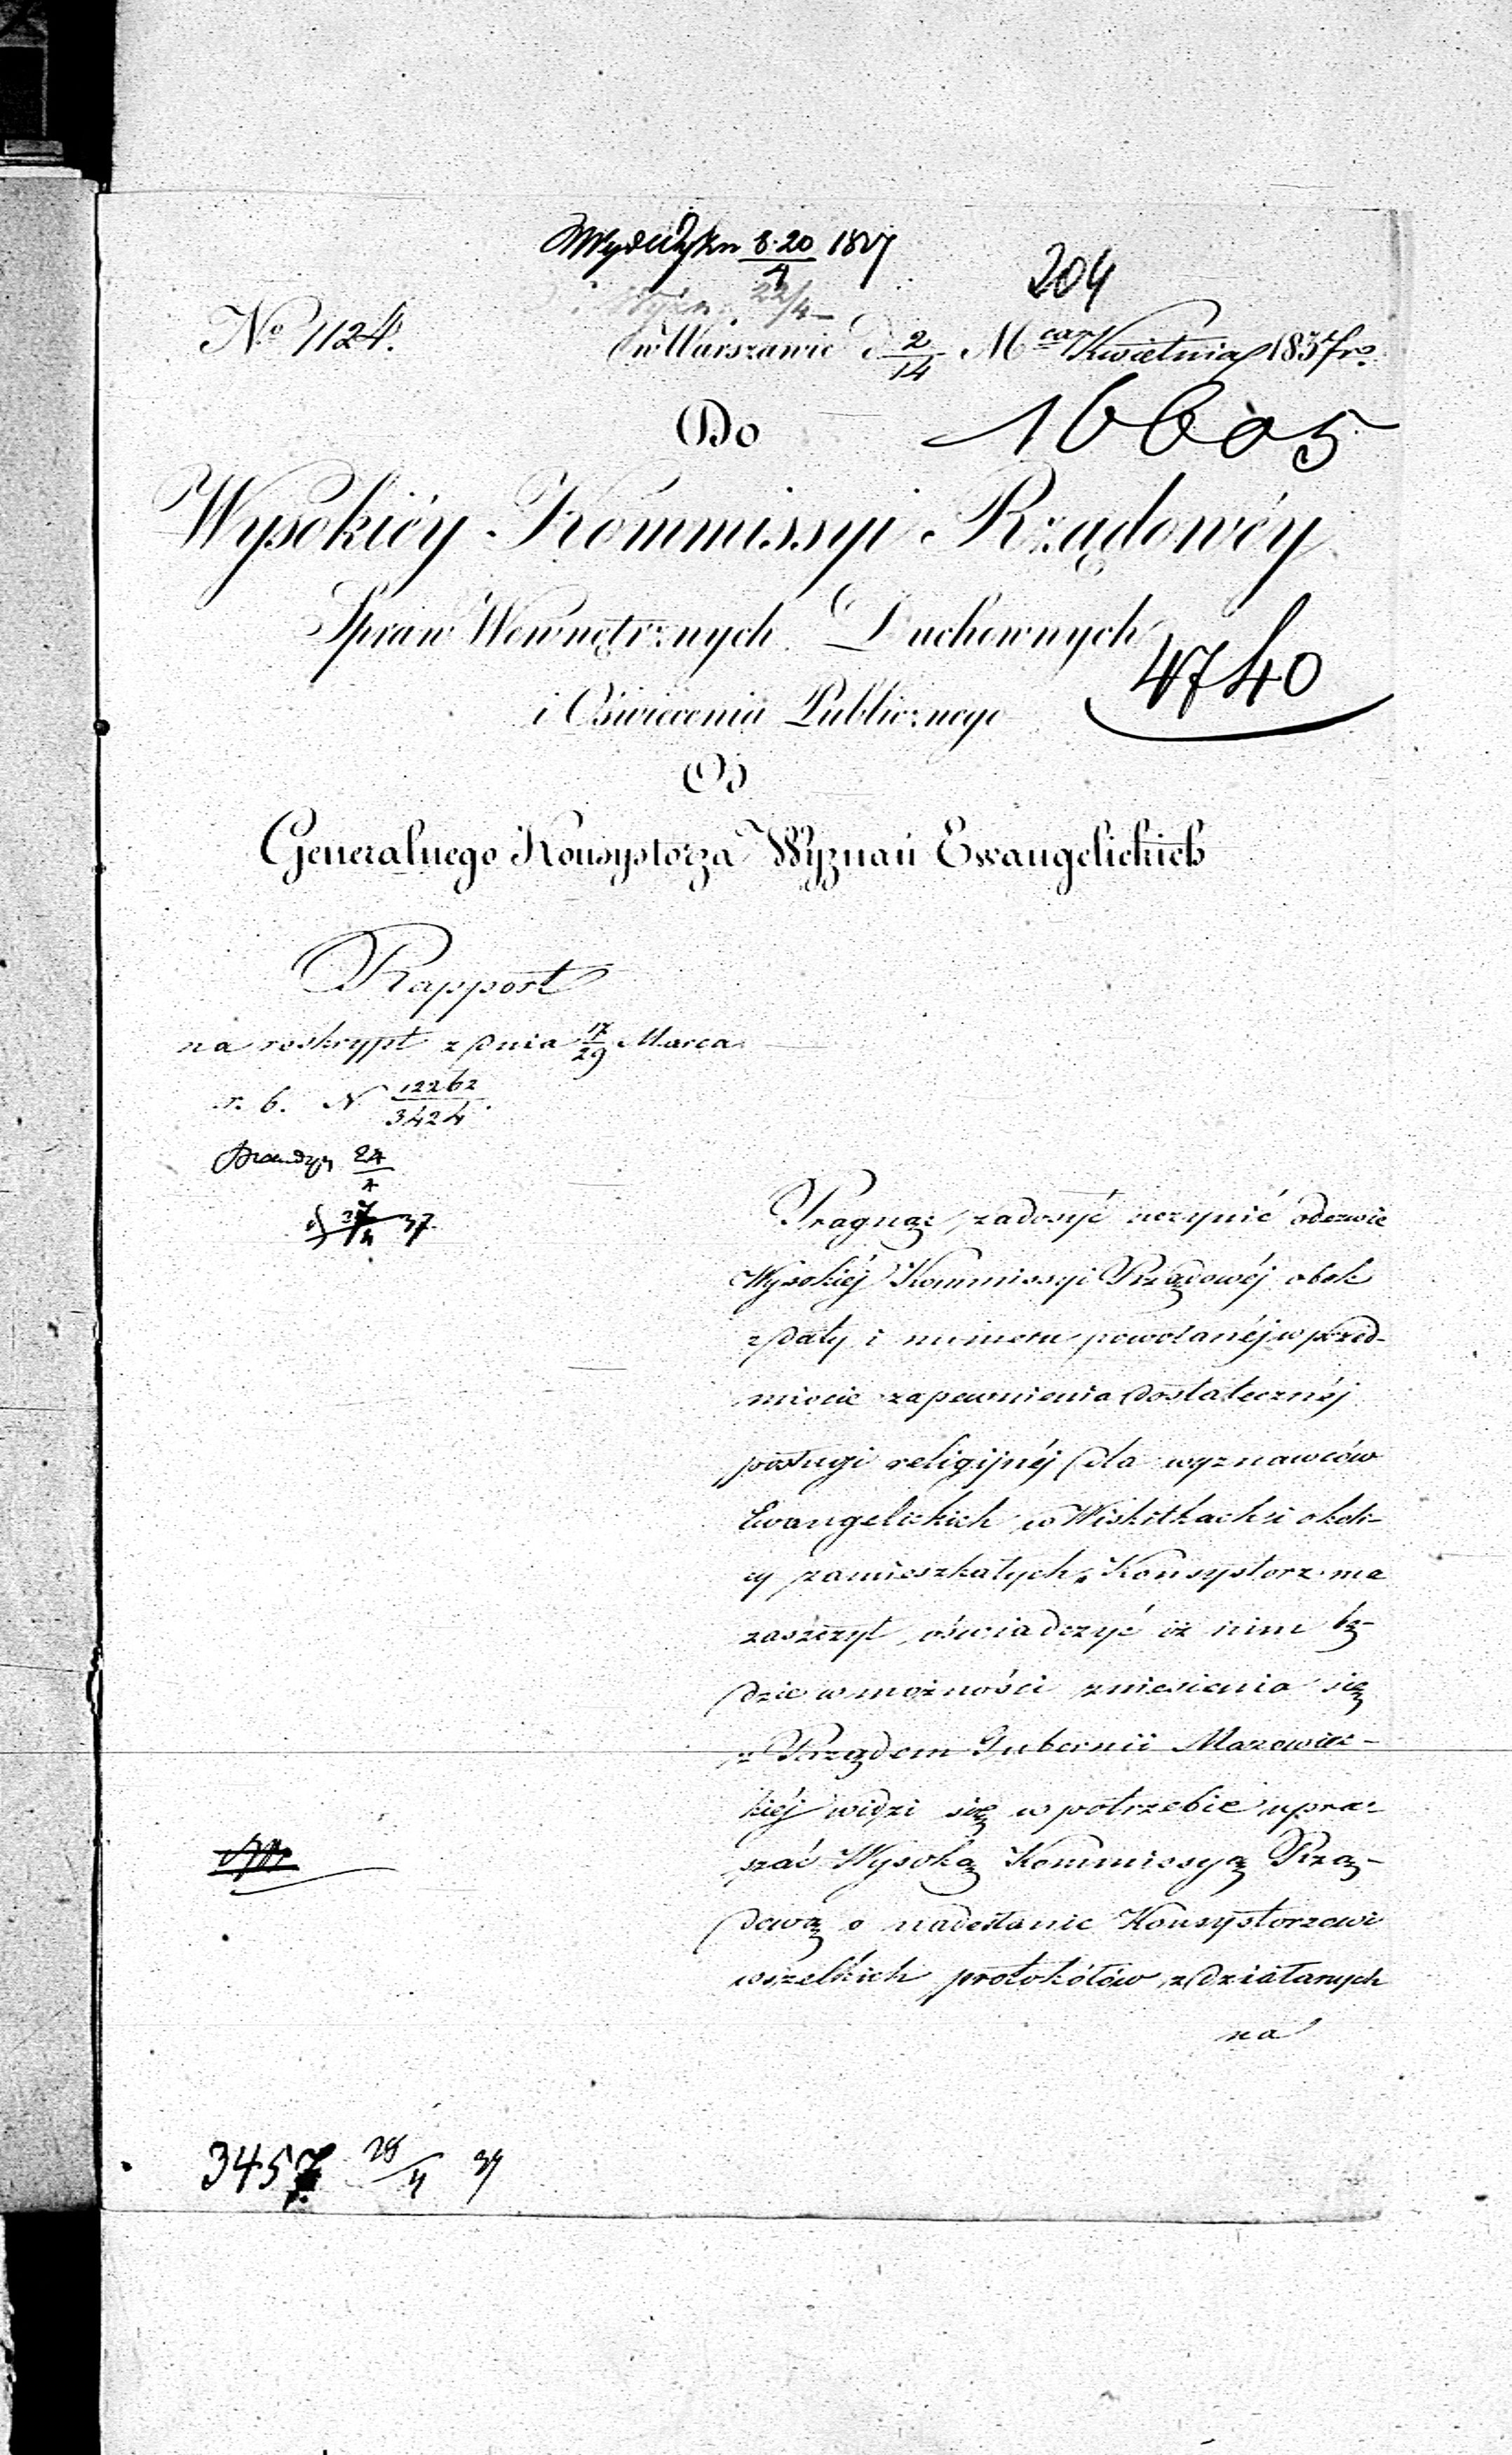 8.20/4 1837
204
22/4
No 1124.
w Warszawie d 2/14 Mca Kwietnia 1837 ro.
Do
16605
Wysokiéy Kommissyi Rządowéy
Spraw Wewnętrznych Duchownych
4740
i Oświecenia Publicznego
Od
Generalnego Konsystorza Wyznań Ewangelickich
Rapport
na reskrypt z dnia 17/29 Marca
r. b. N 12262/3424.
24/4
27/4 37.
Pragnąc zadosyć uczynić odezwie
Wysokiéj Kommissyi Rządowéj obok
z daty i numeru powołanéj w przed-
miocie zapewnienia dostatecznéj
posługi religijnéj dla wyznawców
Ewangelickich w Wiskitkach i okoli-
cy zamieszkałych, Konsystorz ma
zaszczyt oświadczyć iż nim bę-
dzie w możności zniesienia się
z Rządem Gubernii Mazowiec-
kiéj widzi się w potrzebie upra-
szać Wysoką Kommissyą Rzą-
dową o nadesłanie Konsystorzowi
wszelkich protokółów zdziałanych
na
3457 28/4 37